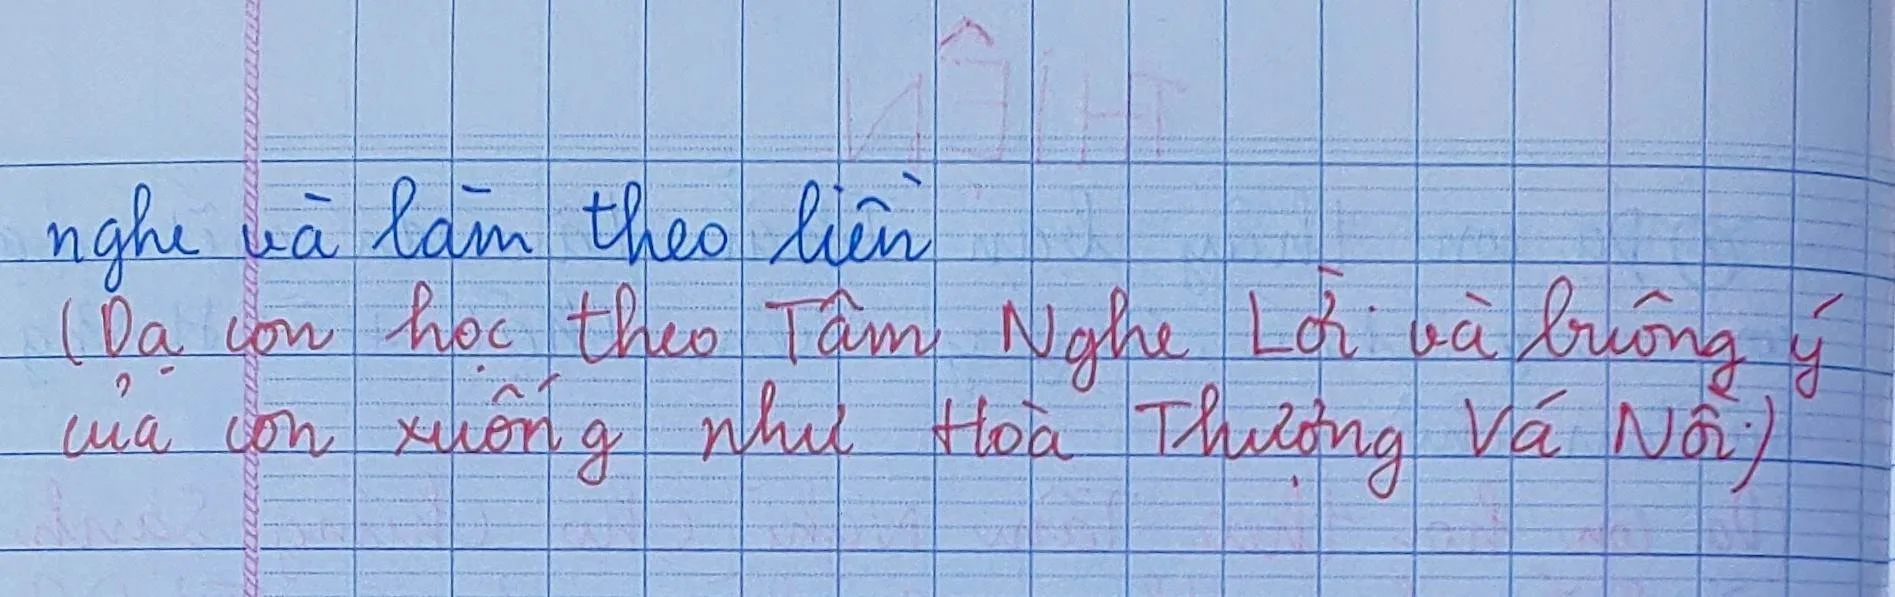 nghe và làm theo liền
(Dạ con học theo Tâm Nghe Lời và buông ý
của con xuống như Hoà Thượng Vá Nồi)